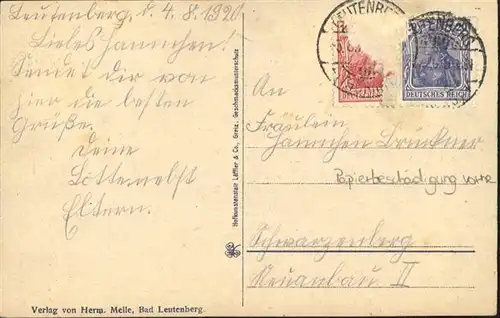 Leutenberg, d. 4.8.1920
Liebes Hannchen!
Sendet dir von
hier die besten
Grüße.
Deine
Lotte nebst
Eltern.
Verlag von Herm. Melle, Bad Leutenberg.
Hofkunstanstalt Löffler & Co., Greiz. Geschmacksmusterschutz
LEUTENBERG
DEUTSCHES REICH
An
Fräulein
Hannchen Brückner
Papierbeschädigung vorne
Schwarzenberg
Neuanbau II